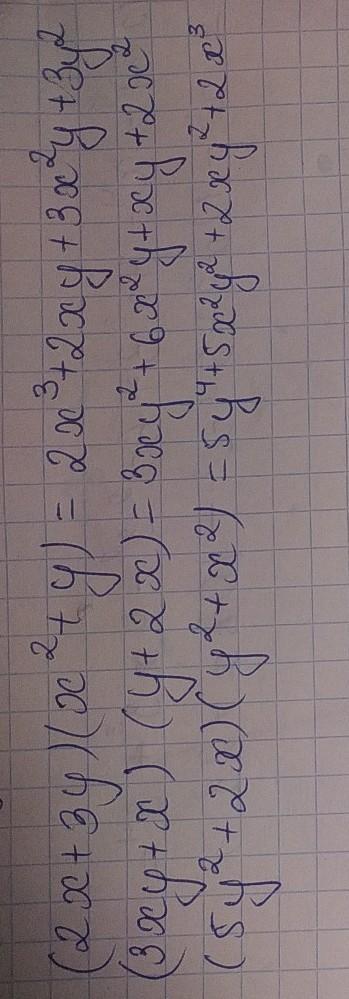 (2x+3y)(x²+y)=2x³+2xy+3x²y+3y²
(3xy+x)(y+2x)=3xy²+6x²y+xy+2x²
(5y²+2x)(y²+x²)=5y⁴+5x²y²+2xy²+2x³